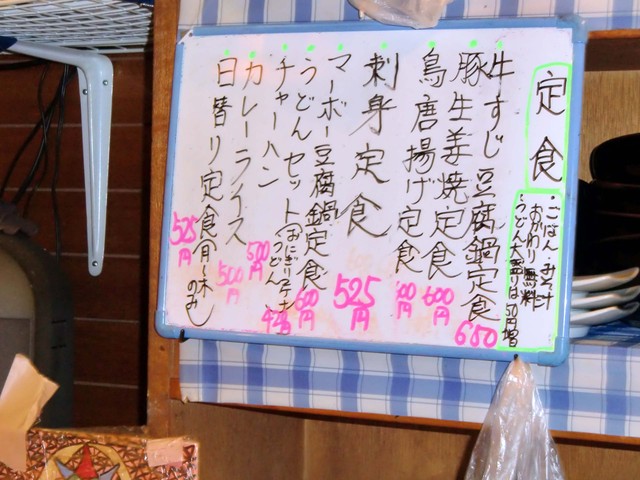 定食
・ごはん・みそ汁
おかわり無料
・うどん大盛りは50円増
・牛すじ豆腐鍋定食 680
・豚生姜焼定食 600円
・鳥唐揚げ定食 600円
・刺身定食 525円
・マーボー豆腐鍋定食 600円
・うどんセット(おにぎり2ケ+うどん
・チャーハン 500円
・カレーライス 500円
・日替り定食(月〜木のみ) 525円